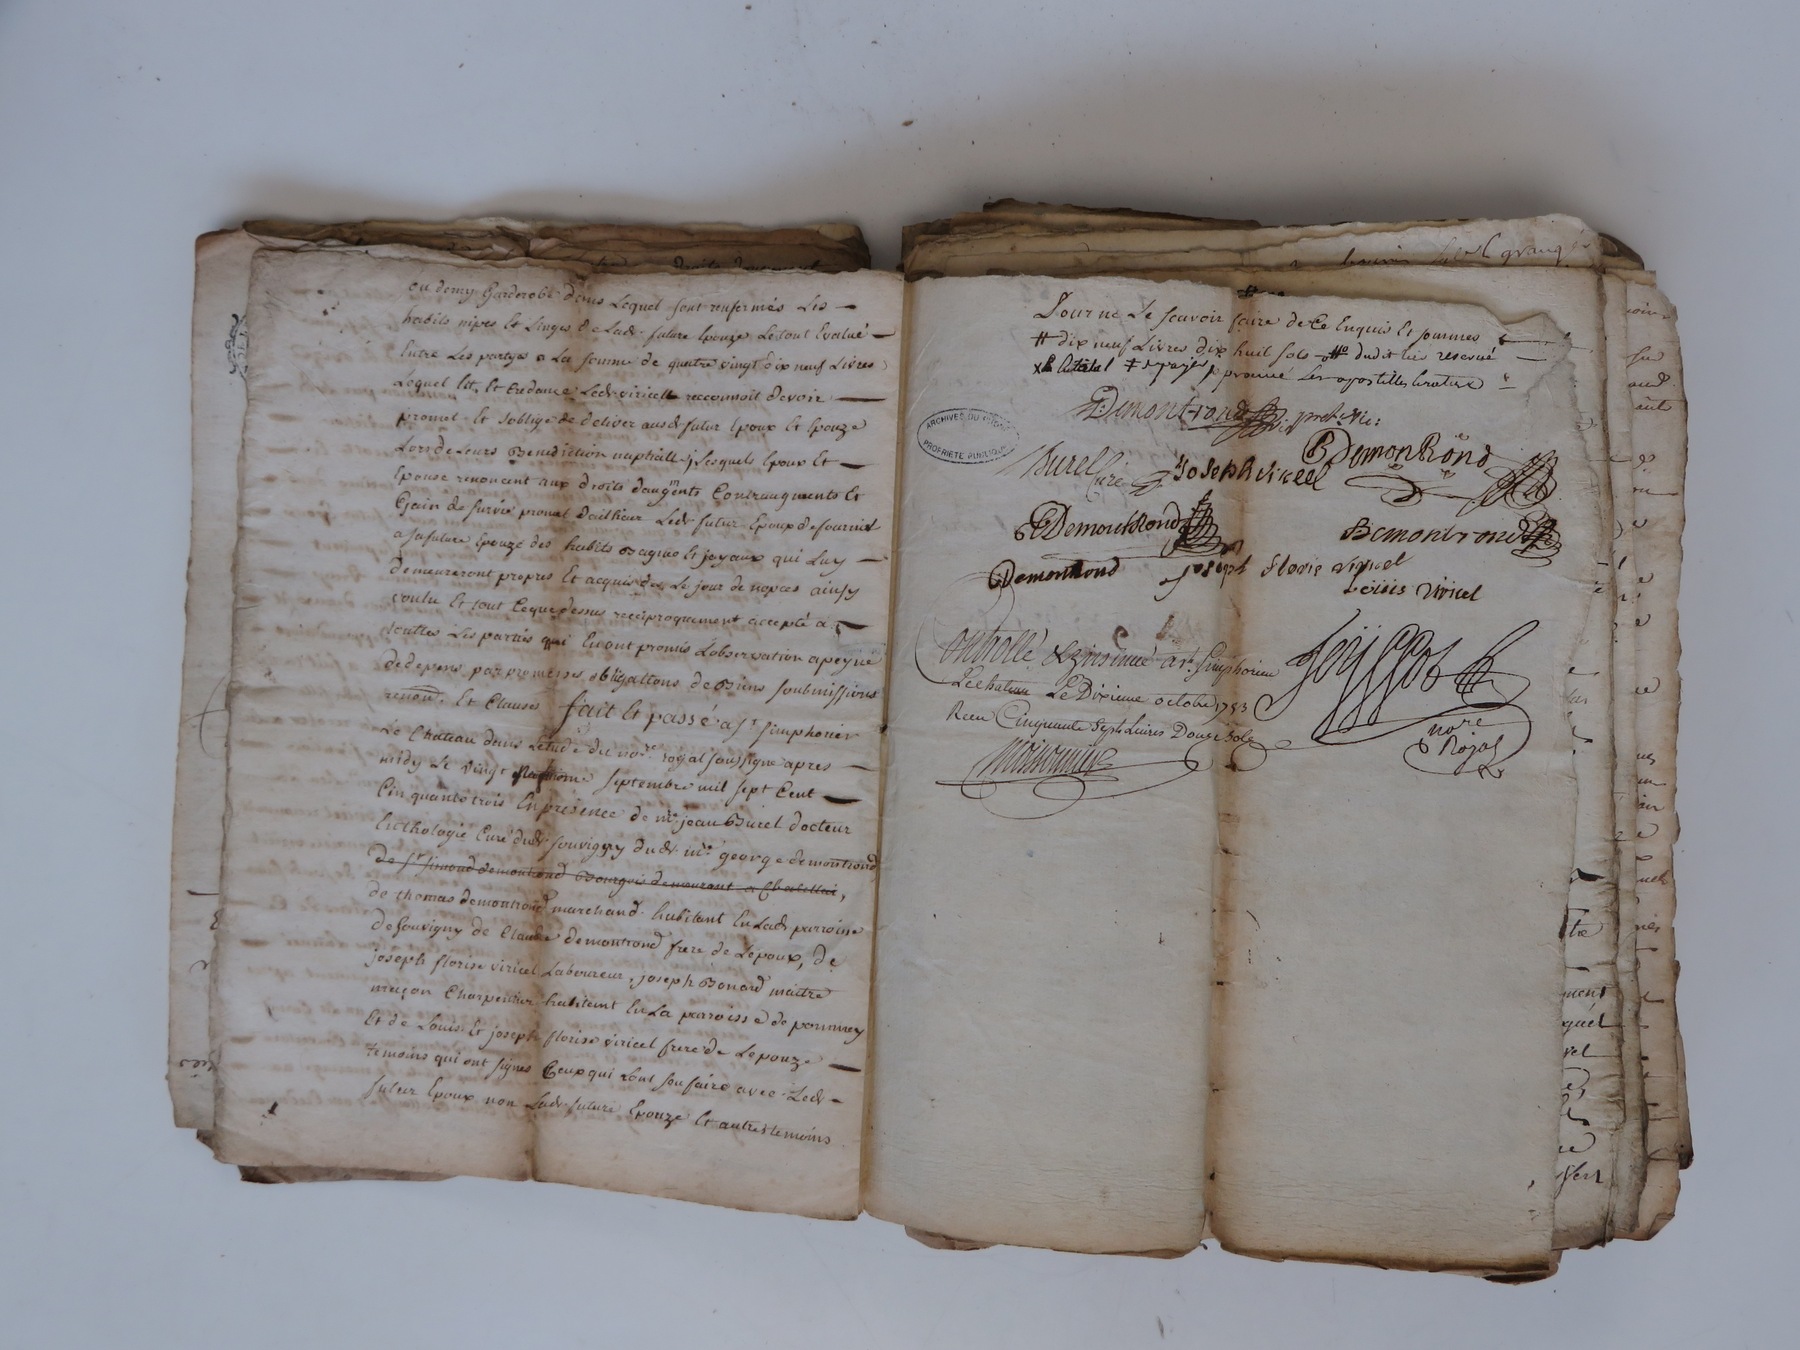 ou demy Garderobe dans Lequel sont renfermés Les
habits nipes Et Linges de Ladt. future Epouze Le tout Evalué
Entre Les partyes a La somme de quatre vingt dix neuf Livres
Lequel lit, Et Credance Ledt viricel reconnoit devoir
promet Et soblige de deliver ausdt futur Epoux Et Epouze
Lors de Leurs Benediction nuptialle, Lesquels Epoux Et
Epouse renoncent aux droits d'augments Contraugments Et
Gain de survie promet dailleur Ledt futur Epoux de fournir
a sa future Epouze des habits Bagues Et joyaux qui Luy
demeureront propres Et acquis des Le jour de nopces ainsy
voulu Et tout Ceque dessus reciproquement accepté a
touttes Les parties qui En ont promis L'observation a peyne
de depens par promesses, obligattons de Biens soubmissions
renon. Et Clauses fait Et passé a St Simphorien
Le Chateau dans L'etude du nore. royal soussigne apres
midy Le vingt septembre mil sept Cent
Cinquante trois En presence de mre jean Burel docteur
En thologie Curé dudt souvigny dudt. mre george demontrond
de Sr Simond demontrond Bourgois demeurant a
de thomas demontrond marchand habitant En Ladt parroisse
de souvigny de Claude demontrond frere de Lepoux, de
joseph florise viricel Laboureur, joseph Bonard maitre
maçon Charpentier habitant En La paroisse de pommey
Et de Louis Et joseph florise viricel frere de Lepouze
temoins qui ont signes Ceux qui ront sou faire avec Ledt
futur Epoux non Ladt future Epouze Et autres temoins
Pour ne Le scavoir faire de Ce Enquis Et sommes
# dix neuf Livres dix huit sols dudit lieu reservé
aprouvé Les apostilles
Demontrond
ARCHIVES DU RHÔNE
PROPRIÉTÉ PUBLIQUE
Burel Curé Joseph viricel Demontrond
Demontrond Demontrond
Demontrond joseph floris viricel
Loüis viricel
Controllé & insinué a St. Simphorien
Le chateau Le Dixieme octobre 1753
Receu Cinquante Sept Livres Douze Sols
nore
Royal